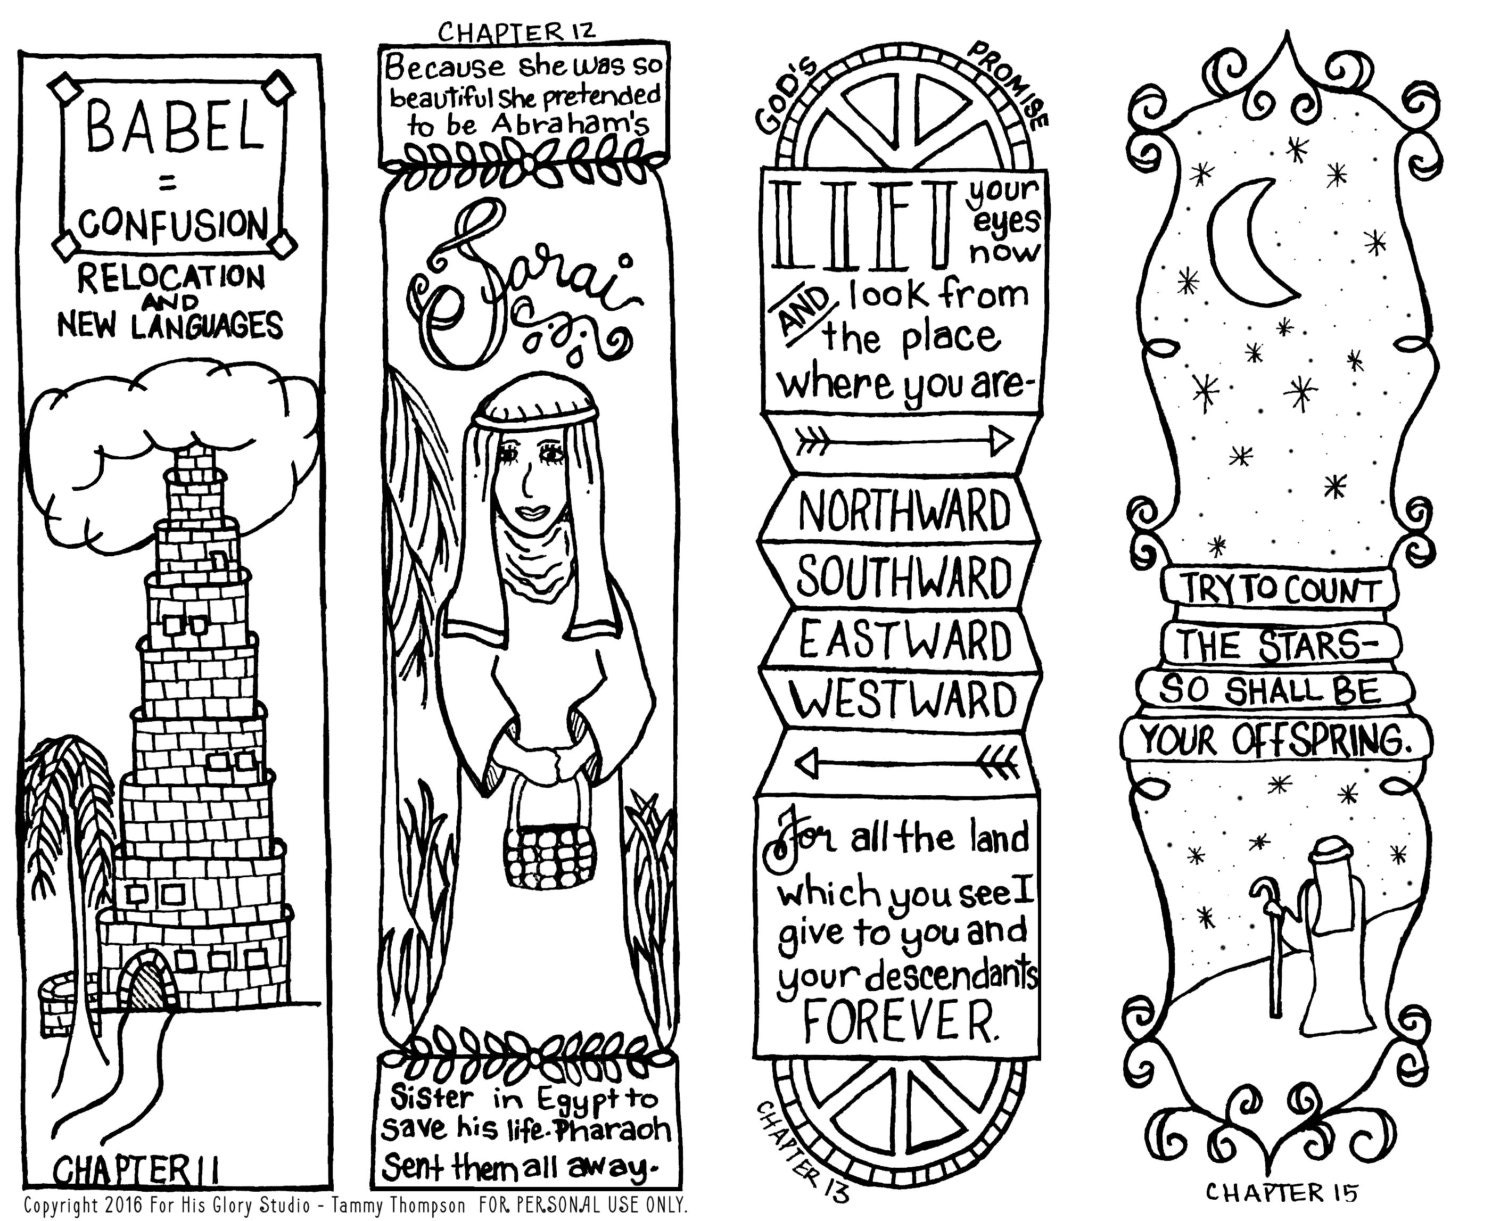 BABEL
=
CONFUSION
RELOCATION
AND
NEW LANGUAGES
CHAPTER 11
CHAPTER 12
Because she was so
beautiful she pretended
to be Abraham's
Sarai
Sister in Egypt to
save his life. Pharaoh
sent them all away.
GOD'S PROMISE
LIFT your
eyes
now
AND look from
the place
where you are-
NORTHWARD
SOUTHWARD
EASTWARD
WESTWARD
For all the land
which you see I
give to you and
your descendants
FOREVER.
CHAPTER 13
TRY TO COUNT
THE STARS-
SO SHALL BE
YOUR OFFSPRING.
CHAPTER 15
Copyright 2016 For His Glory Studio - Tammy Thompson FOR PERSONAL USE ONLY.